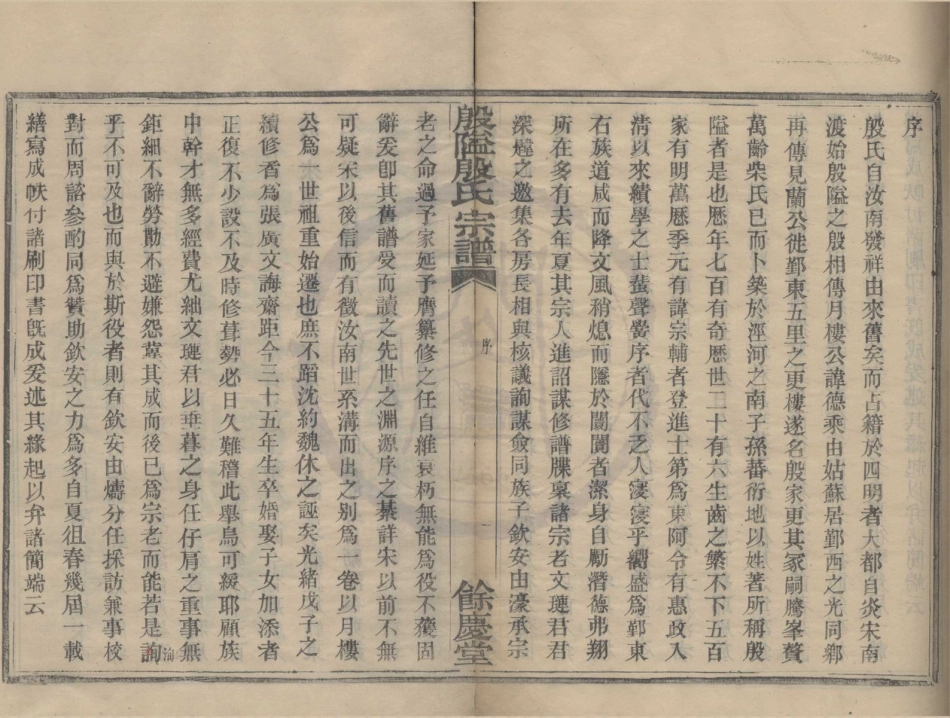 序
殷氏自汝南發祥由來舊矣而占籍於四明者大都自炎宋南
渡始殷隘之殷相傳月樓公諱德乘由姑蘇居鄞西之光同鄉
再傳見蘭公徙鄞東五里之更樓遂名殷家更其冢嗣騰峯贅
萬齡柴氏已而卜築於涇河之南子孫蕃衍地以姓著所稱殷
隘者是也歷年七百有奇歷世二十有六生齒之繁不下五百
家有明萬歷季元有諱宗輔者登進士第為東阿令有惠政入
淸以來績學之士蜚聲黌序者代不乏人寖寖乎襴盛為鄞東
右族道咸而降文風稍熄而隱於闤闠者潔身自勵潛德弗翔
所在多有去年夏其宗人進詔謀修譜牒稟諸宗老文璉君君
深韙之邀集各房長相與核議詢謀僉同族子欽安由濠承宗
殷隘殷氏宗譜
序
一
餘慶堂
老之命過予家延予膺纂修之任自維衰朽無能為役不獲固
辭爰卽其舊譜受而讀之先世之淵源序之綦詳宋以前不無
可疑宋以後信而有徵汝南世系溝而出之别為一卷以月樓
公為一世祖重始遷也庶不蹈沈約魏休之誣矣光緒戊子之
續修者為張廣文誨齋距今三十五年生卒婚娶子女加添者
正復不少設不及時修葺勢必日久難稽此舉烏可緩耶顧族
中幹才無多經費尤紬文璉君以垂暮之身任仔肩之重事無
鉅細不辭勞勩不避嫌怨蘄其成而後已為宗老而能若是詢洵
乎不可及也而與於斯役者則有欽安由燽分任採訪兼事校
對而周諮參酌同為贊助欽安之力為多自夏徂春幾屆一載
繕寫成帙付諸刷印書旣成爰述其緣起以弁諸簡端云